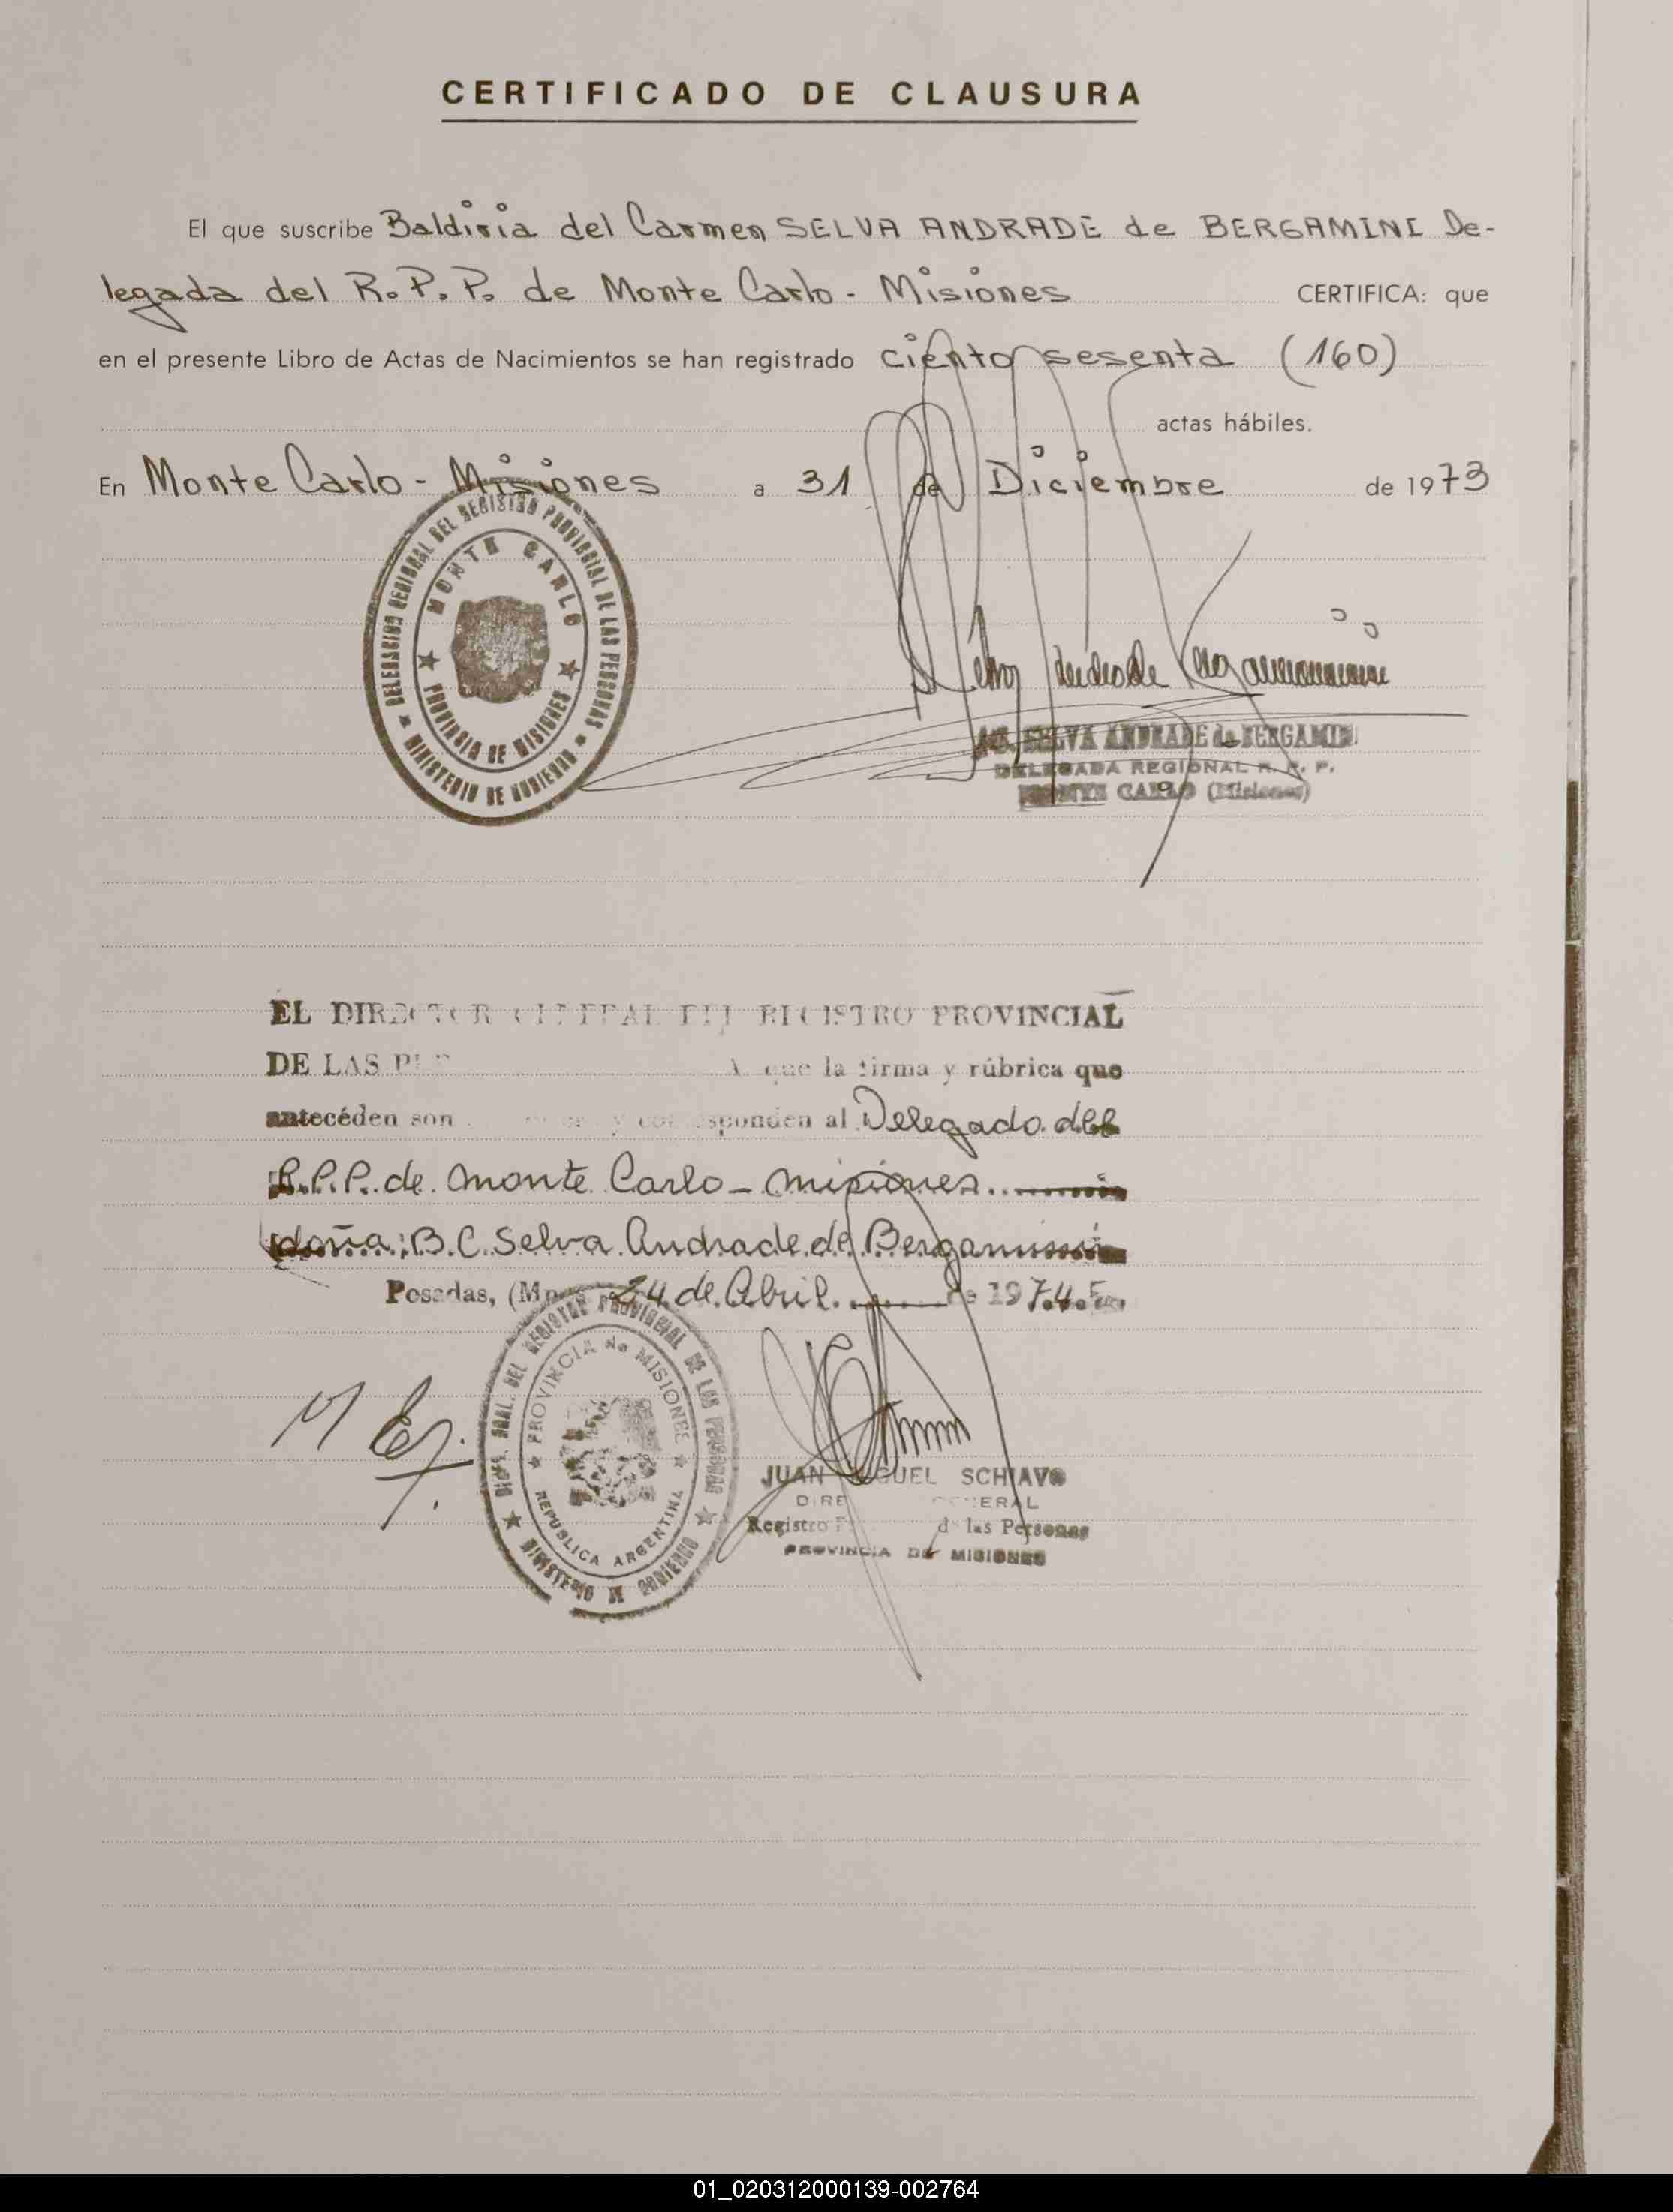 CERTIFICADO DE CLAUSURA
El que suscribe Baldiria del Carmen SELVA ANDRADE de BERGAMINI De-
legada del R.P.P. de Monte Carlo - Misiones CERTIFICA: que
en el presente Libro de Actas de Nacimientos se han registrado ciento sesenta (160)
actas hábiles.
En Monte Carlo - Misiones a 31 de Diciembre de 1973
DELEGACION REGIONAL DEL REGISTRO PROVINCIAL DE LAS PERSONAS
MONTE CARLO
PROVINCIA DE MISIONES
MINISTERIO DE GOBIERNO
SELVA ANDRADE de BERGAMINI
DELEGADA REGIONAL R. P. P.
MONTE CARLO (Misiones)
EL DIRECTOR GENERAL DEL REGISTRO PROVINCIAL
DE LAS que la firma y rúbrica que
antecéden son y corresponden al Delegado del
R.P.P. de Monte Carlo - Misiones
doña: B.C. Selva Andrade de Bergamini
Posadas, 24 de Abril de 1974
DIRE. GRAL. DEL REGISTRO PROVINCIAL DE LAS PERSONAS
PROVINCIA de MISIONES
REPUBLICA ARGENTINA
MINISTERIO DE GOBIERNO
JUAN MIGUEL SCHIAVO
DIRECTOR GENERAL
Registro de las Personas
PROVINCIA DE MISIONES
01_020312000139-002764